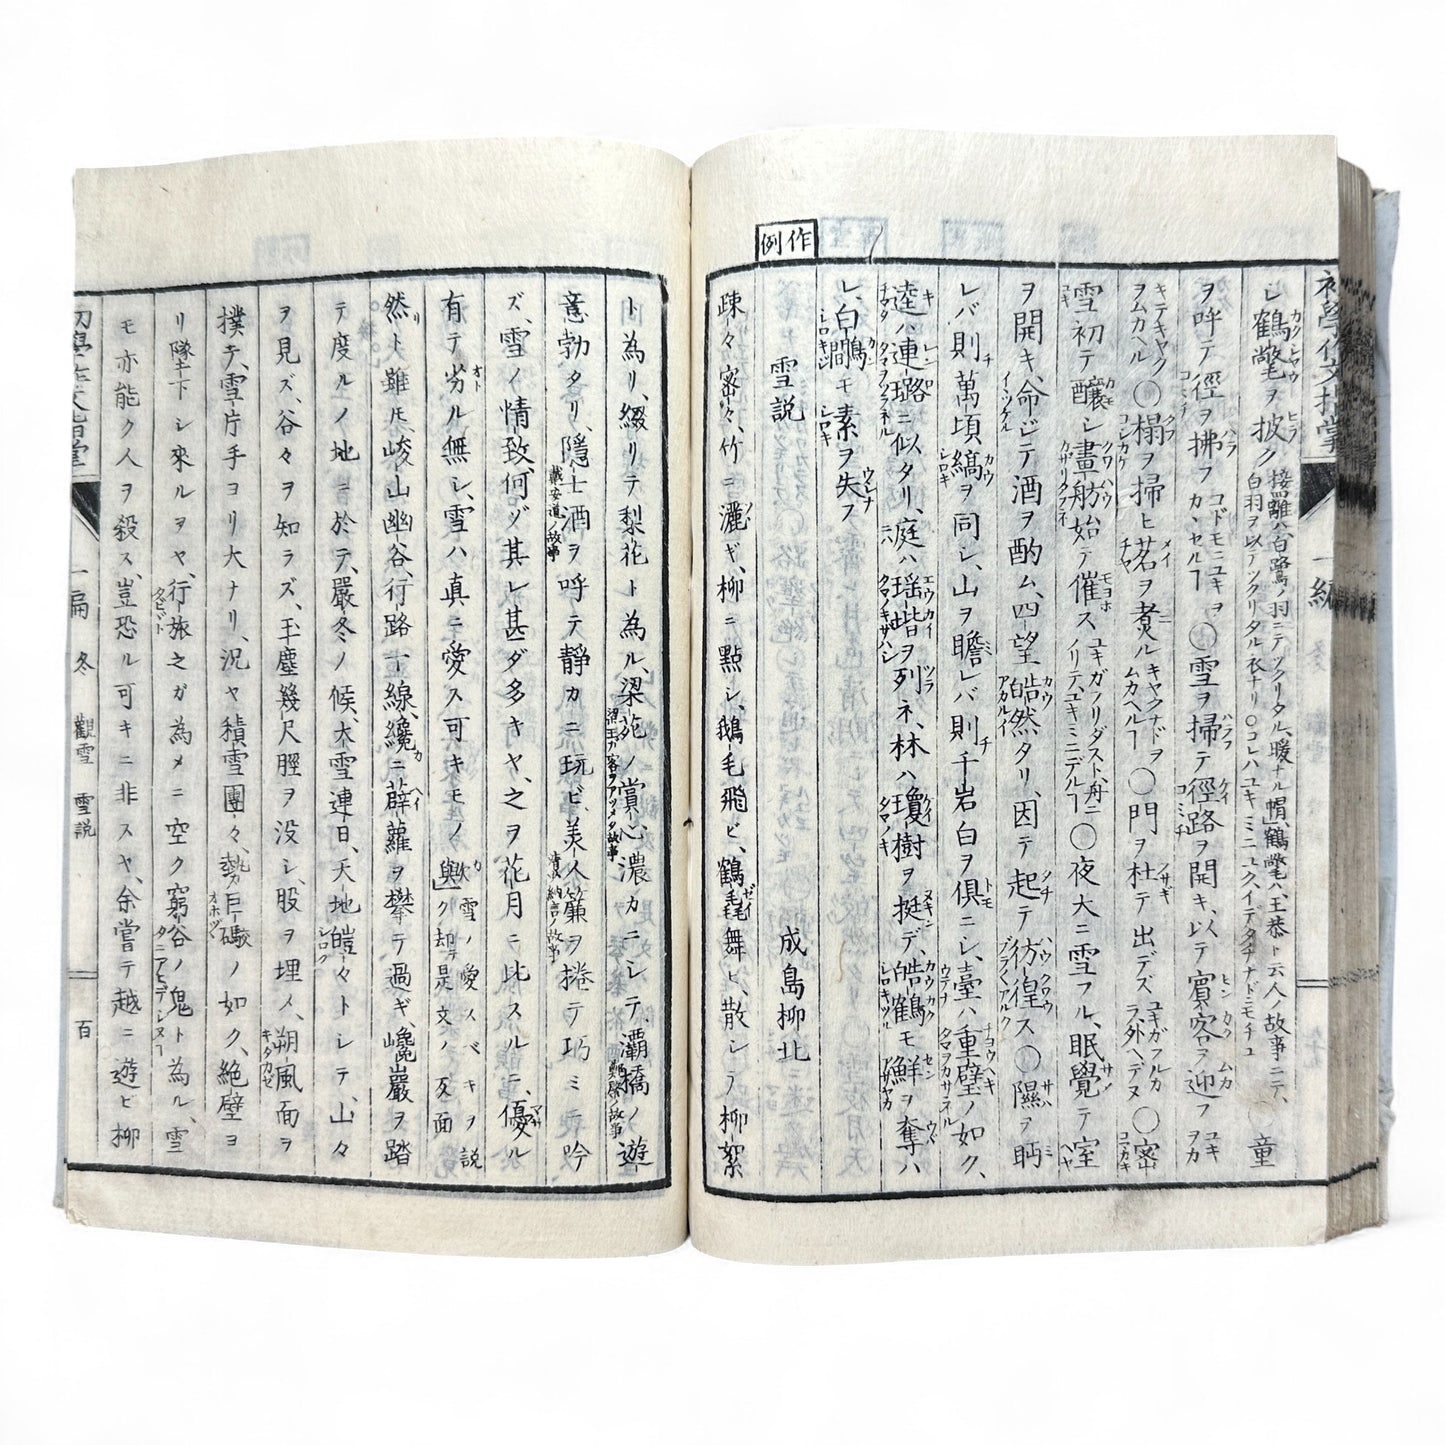 初學作文指掌 一編
シ、鶴氅ヲ披ク 接䍦ハ白鷺ノ羽ニテツクリタル、暖ナル帽、鶴氅ハ、王恭ト云人ノ故事ニテ、白羽ヲ以テツクリタル衣ナリ○コレハユキミニユク、イデタチナドニモチユ ○童
ヲ呼テ徑ヲ拂フ コドモニユキヲカヽセルヿ ○雪ヲ掃テ徑路ヲ開キ、以テ賓客ヲ迎フ ユキヲカ
キテキヤクヲムカヘル ○榻ヲ掃ヒ茗ヲ煮ル キヤクナドヲムカヘルヿ ○門ヲ杜テ出デズ ユキガフルカラ、外ヘデヌ ○密
雪初テ釀シ畫舫始テ催ス ユキガフリダスト、舟ニノリテ、ユキミニデルヿ ○夜大ニ雪フル、眠覺テ室
ヲ開キ、命ジテ酒ヲ酌ム、四望皓然タリ、因テ起テ彷徨ス○隰ヲ眄
レバ則萬頃縞ヲ同シ、山ヲ瞻レバ則千岩白ヲ俱ニシ、臺ハ重璧ノ如ク、
逵ハ連璐ニ似タリ、庭ハ瑶堦ヲ列ネ、林ハ瓊樹ヲ挺デ、皓鶴モ鮮ヲ奪ハ
レ、白鷴モ素ヲ失フ
作例
雪説 成島柳北
疎々密々、竹ニ灑ギ、柳ニ點シ、鵝毛飛ビ、鶴毳舞ヒ、散シテ柳絮
ト為リ、綴リテ梨花ト為ル、梁苑ノ賞心、濃カニシテ灞橋ノ遊
意勃タリ、隱士酒ヲ呼テ靜カニ玩ビ、美人簾ヲ捲テ巧ミニ吟
ズ、雪ノ情致、何ゾ其レ甚ダ多キヤ、之ヲ花月ニ比スルニ、優ル
有テ劣ル無シ、雪ハ真ニ愛ス可キモノ歟 雪ノ愛スベキヲ説ク却テ是文ノ反面
然リト雖モ峻山幽谷、行路一線、纔ニ薜蘿ヲ攀テ過ギ、巉巖ヲ踏
テ度ルノ地ニ於テ、嚴冬ノ候、大雪連日、天地皚々トシテ、山々
ヲ見ズ、谷々ヲ知ラズ、玉塵幾尺脛ヲ没シ、股ヲ埋メ、朔風面ヲ
撲テ、雪片手ヨリ大ナリ、況ヤ積雪團々、勢巨礮ノ如ク、絶壁ヨ
リ隊下シ來ルヲヤ、行旅之ガ為メニ空ク窮谷ノ鬼ト為ル、雪
モ亦能ク人ヲ殺ス、豈恐ル可キニ非スヤ、余嘗テ越ニ遊ビ柳
初學作文指掌 一編 冬 觀雪 雪説 百